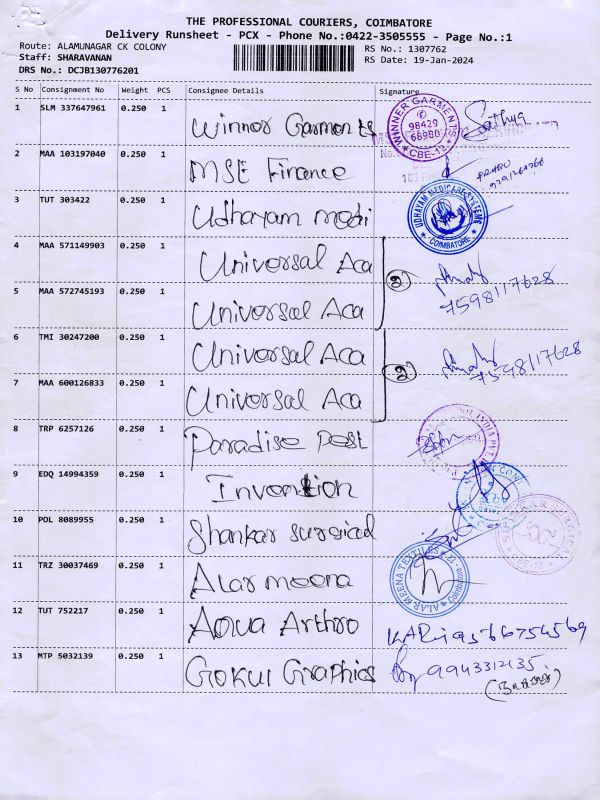 THE PROFESSIONAL COURIERS, COIMBATORE
Delivery Runsheet - PCX - Phone No.:0422-3505555 - Page No.:1
Route: ALAMUNAGAR CK COLONY
Staff: SHARAVANAN
DRS No.: DCJB130776201
RS No.: 1307762
RS Date: 19-Jan-2024
S No Consignment No Weight PCS Consignee Details Signature
1 SLM 337647961 0.250 1 Winner Garments
WINNER GARMENTS
98429
68980
* CBE-12 *
2 MAA 103197040 0.250 1 MSE Finance
3 TUT 303422 0.250 1 Udhayam medi
UDHAYAM MEDICARE SYSTEMS
COIMBATORE
4 MAA 571149903 0.250 1 Universal Aca
5 MAA 572745193 0.250 1 Universal Aca
2
7598117628
6 TMI 30247200 0.250 1 Universal Aca
7 MAA 600126833 0.250 1 Universal Aca
2
7598117628
8 TRP 6257126 0.250 1 Paradise Post
9 EDQ 14994359 0.250 1 Invention
10 POL 8089955 0.250 1 Shankar surgical
11 TRZ 30037469 0.250 1 Alar meena
ALAR MEENA TEXTILES
12 TUT 752217 0.250 1 Aqua Arthro
13 MTP 5032139 0.250 1 Gokul Graphics 9943312135